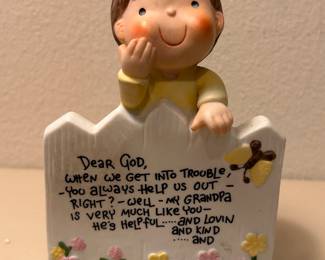 DEAR GOD,
WHEN WE GET INTO TROUBLE,
-YOU ALWAYS HELP US OUT -
RIGHT? - WELL - MY GRANDPA
IS VERY MUCH LIKE YOU -
HE'S HELPFUL.....AND LOVIN
.....AND KIND
.....AND